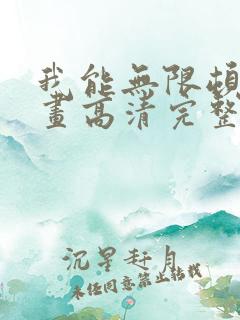 我能無限
畫高清完整
沉星赶月
未经同意禁止转载